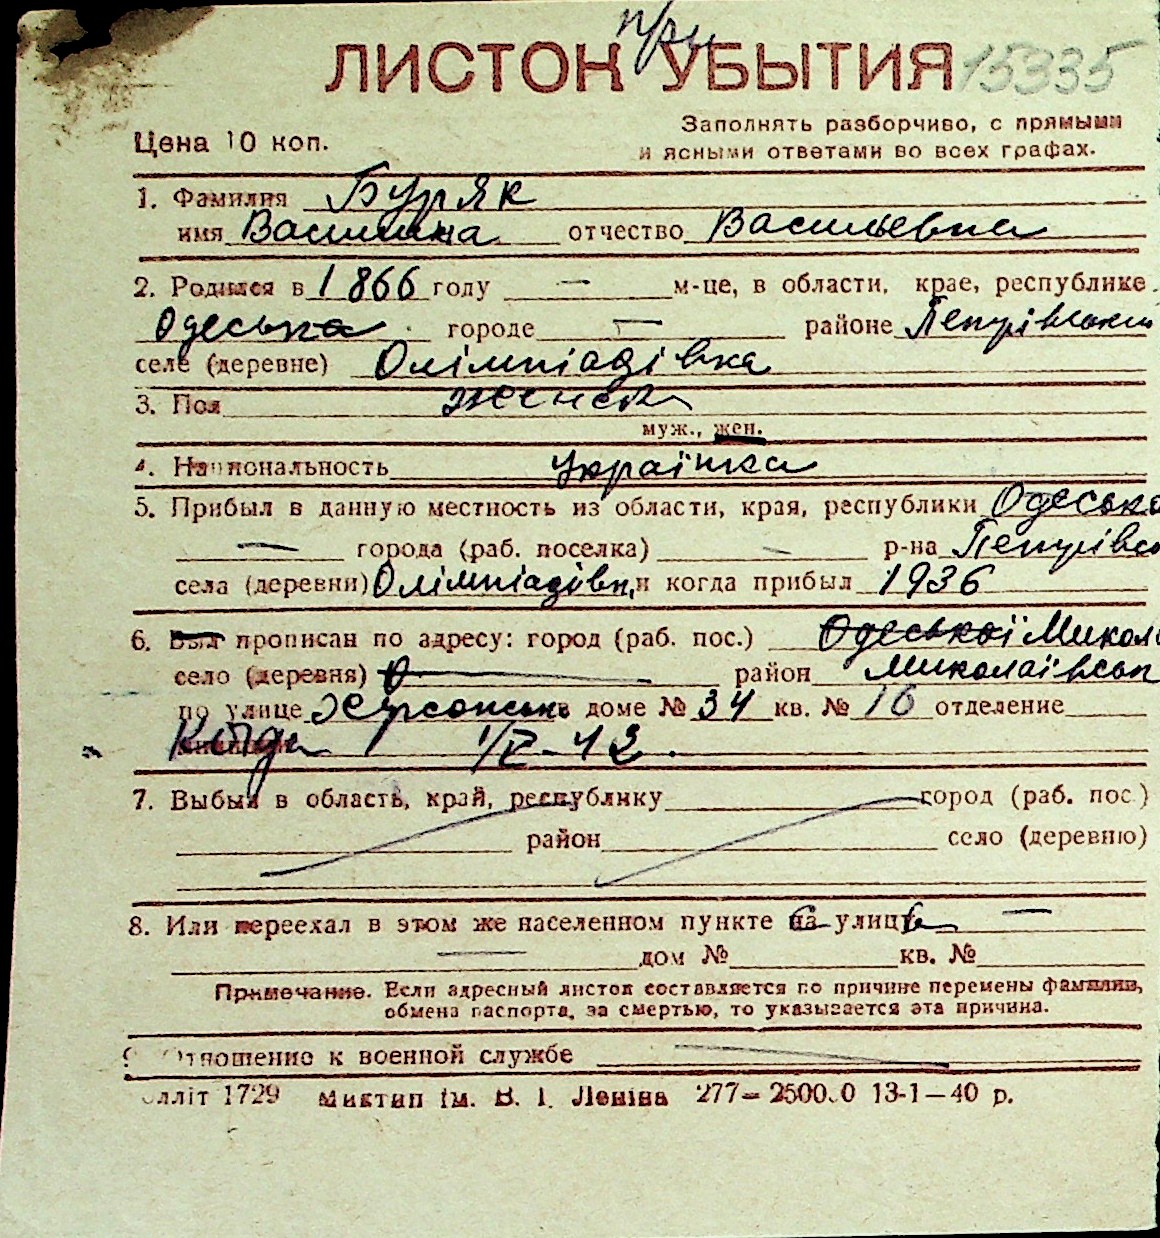 при
ЛИСТОК УБЫТИЯ 15335
Заполнять разборчиво, с прямыми
Цена 10 коп.
и ясными ответами во всех графах.
1. Фамилия Буряк
имя Василина отчество Васильевна
2. Родился в 1866 году — м-це, в области, крае, республике
Одеська городе — районе
селе (деревне) Олімпіадівка
3. Пол женск
муж., жен.
4. Национальность Українка
5. Прибыл в данную местность из области, края, республики Одесько
— города (раб. поселка) — р-на
села (деревни) Олімпіадівк и когда прибыл 1936
6. Был прописан по адресу: город (раб. пос.) Одеської Микола
село (деревня) район Миколаївськ
по улице Херсонськ в доме № 34 кв. № 16 отделение
1/V-42.
7. Выбыл в область, край, республику город (раб. пос.)
район село (деревню)
8. Или переехал в этом же населенном пункте на улицу —
— дом № кв. №
Примечание. Если адресный листок составляется по причине перемены фамилии,
обмена паспорта, за смертью, то указывается эта причина.
9. Отношение к военной службе
элліт 1729 Миктип ім. В. І. Леніна 277—25000 13-1—40 р.